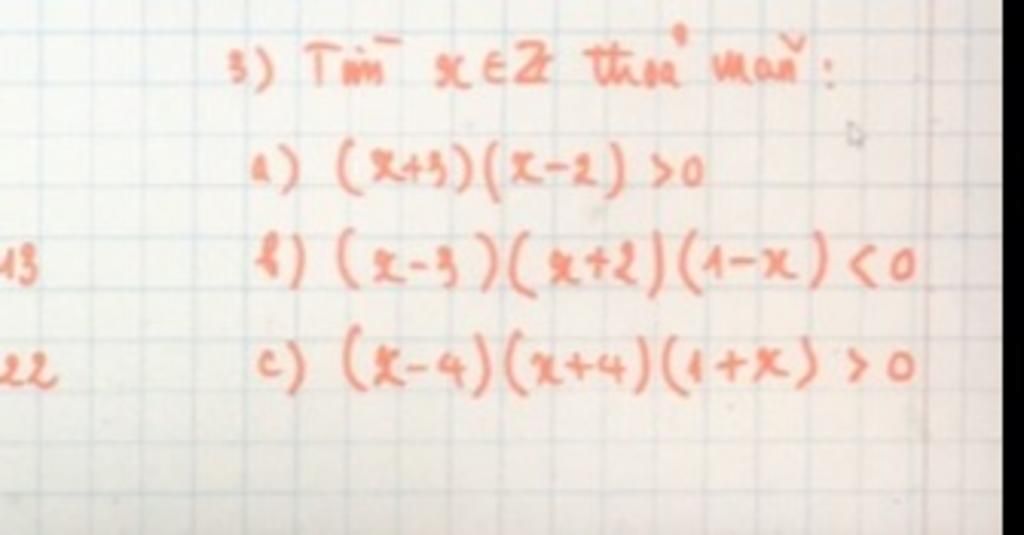 3) Tìm x ∈ ℤ thoả mãn :
a) (x+3)(x-2) >0
13
b) (x-3)(x+2)(1-x) < 0
22
c) (x-4)(x+4)(1+x) > 0